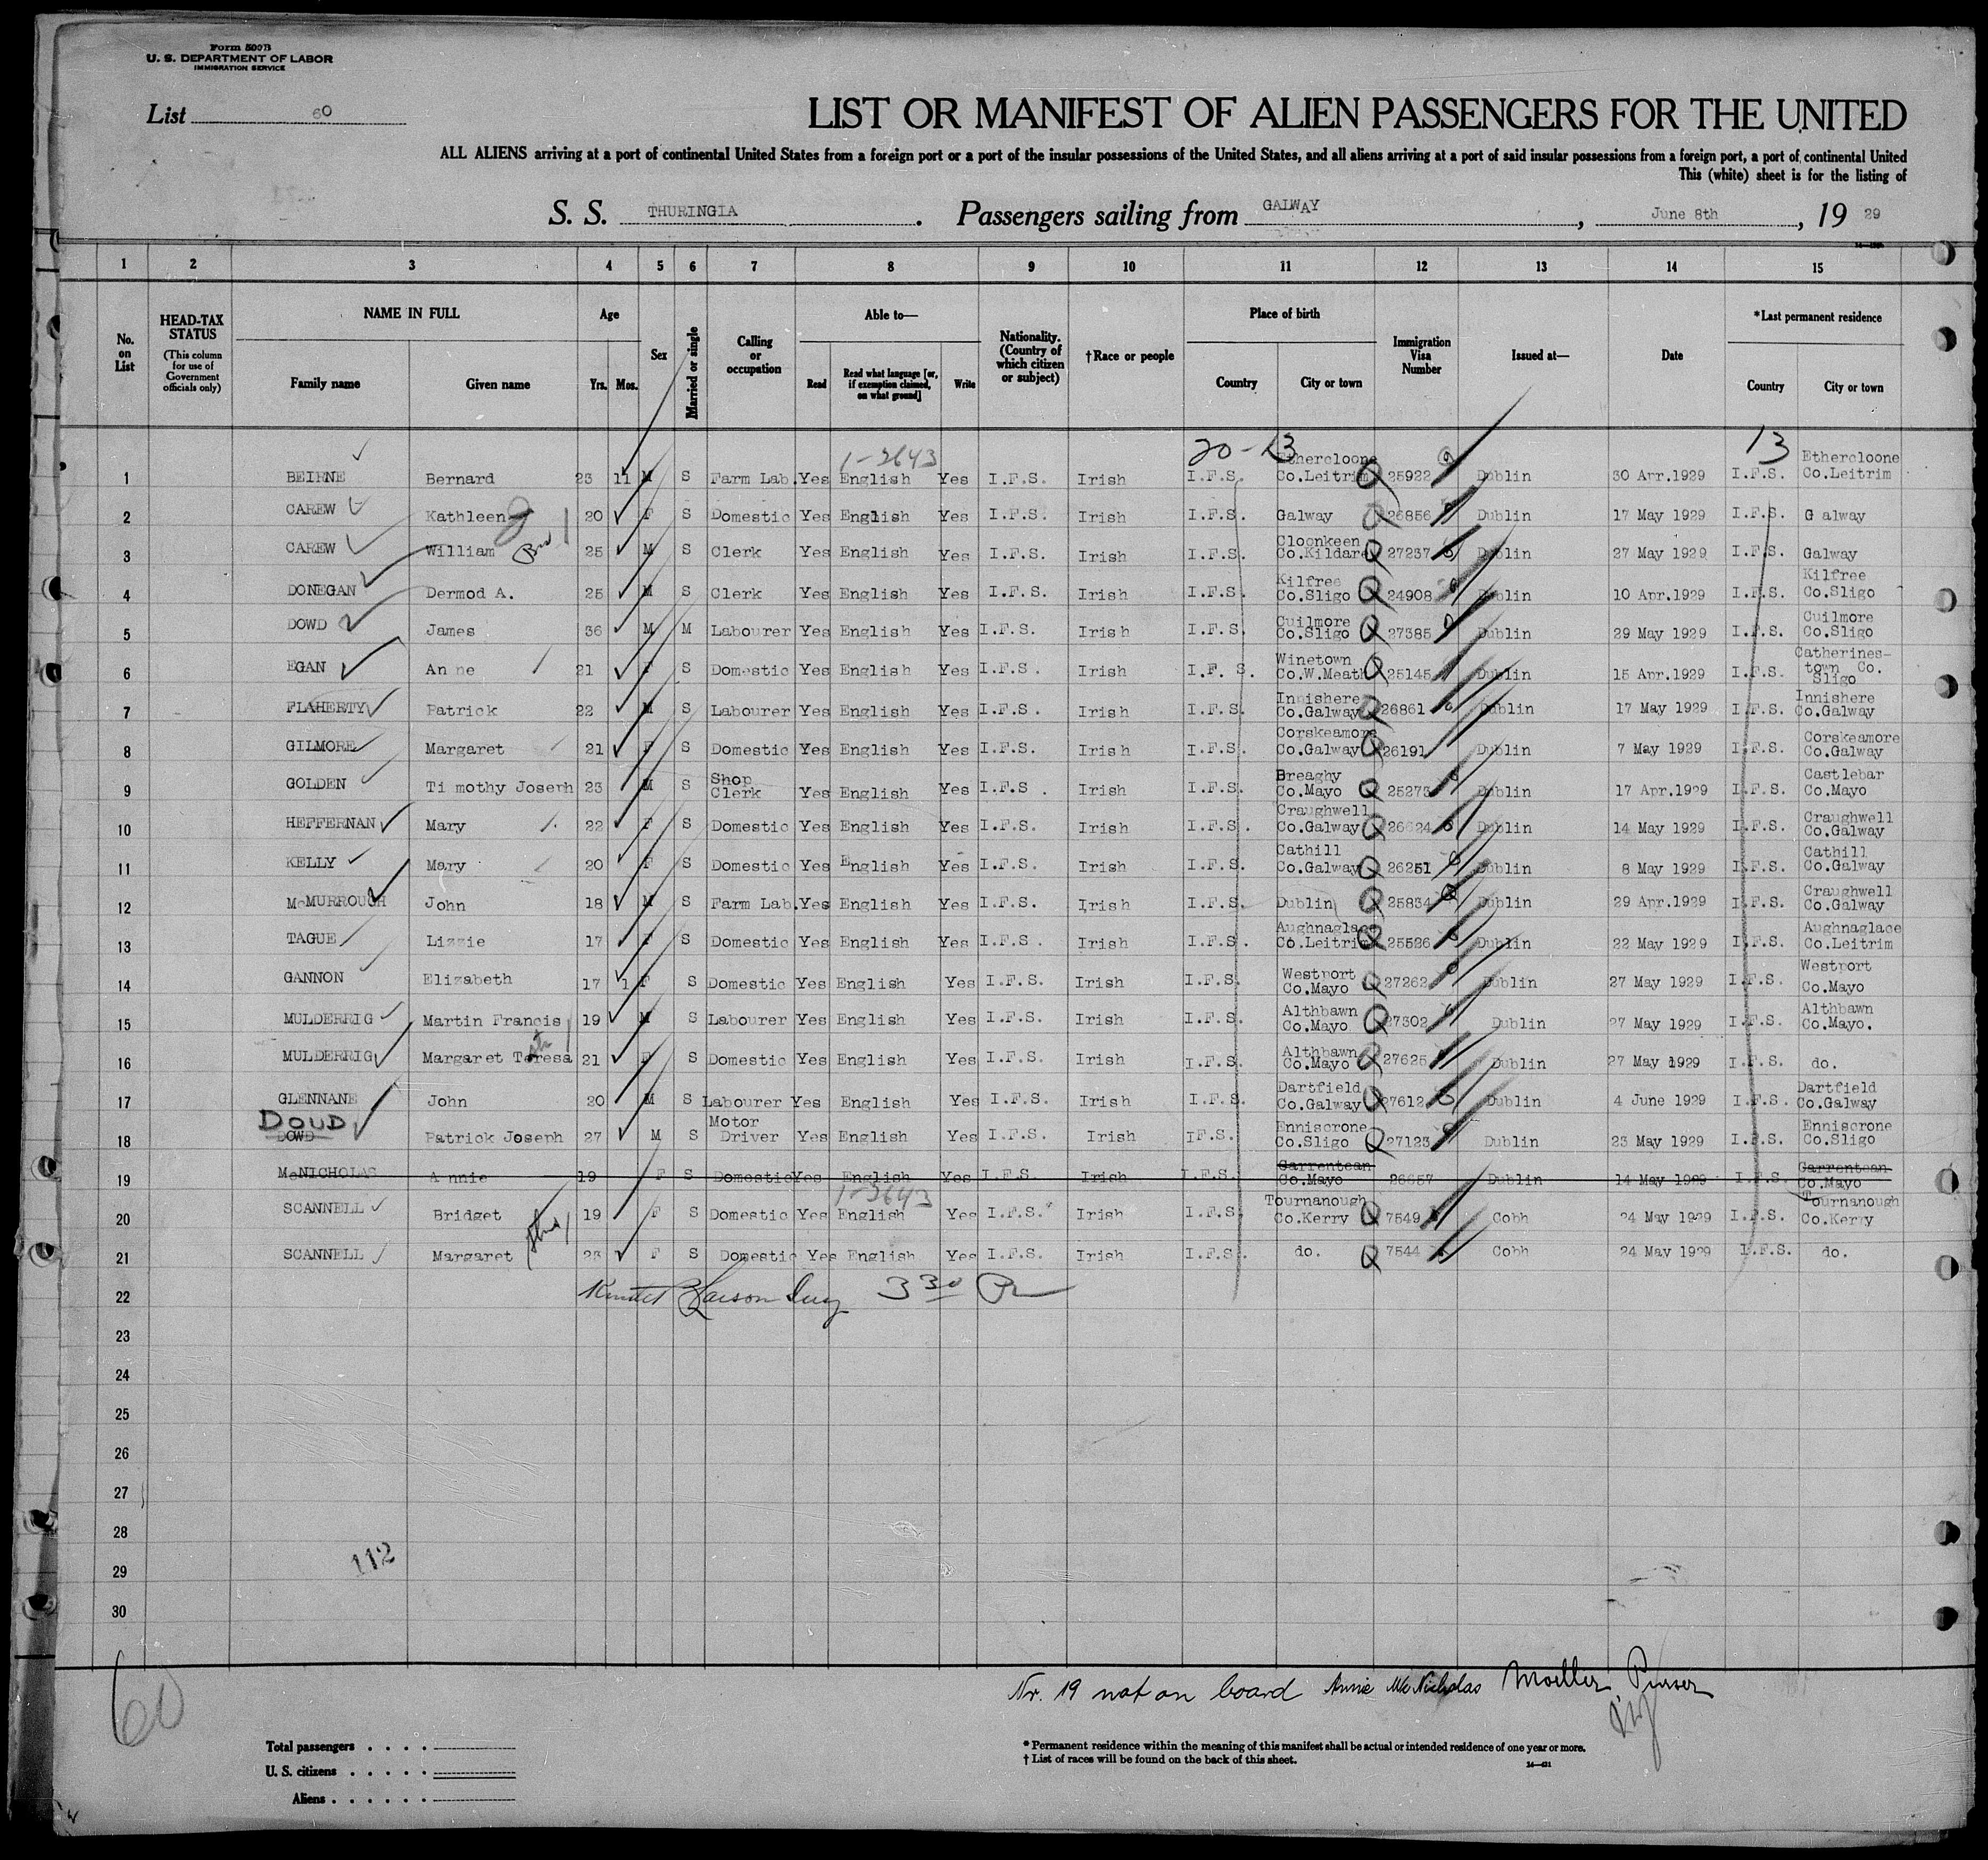 Form 500B
U. S. DEPARTMENT OF LABOR
IMMIGRATION SERVICE
List 60
LIST OR MANIFEST OF ALIEN PASSENGERS FOR THE UNITED
ALL ALIENS arriving at a port of continental United States from a foreign port or a port of the insular possessions of the United States, and all aliens arriving at a port of said insular possessions from a foreign port, a port of continental United
This (white) sheet is for the listing of
S. S. THURINGIA. Passengers sailing from GALWAY, June 8th, 19 29
1 2 3 4 5 6 7 8 9 10 11 12 13 14 15
No. on List
HEAD-TAX STATUS (This column for use of Government officials only)
NAME IN FULL
Family name
Given name
Age
Yrs. Mos.
Sex
Married or single
Calling or occupation
Able to—
Read
Read what language [or, if exemption claimed, on what ground]
Write
Nationality. (Country of which citizen or subject)
†Race or people
Place of birth
Country
City or town
Immigration Visa Number
Issued at—
Date
*Last permanent residence
Country
City or town
1-2643 20-13 13
1 BEIRNE Bernard 23 11 M S Farm Lab. Yes English Yes I.F.S. Irish I.F.S. Ethercloone Co.Leitrim 25922 Dublin 30 Apr.1929 I.F.S. Ethercloone Co.Leitrim
2 CAREW Kathleen 20 F S Domestic Yes English Yes I.F.S. Irish I.F.S. Galway 26856 Dublin 17 May 1929 I.F.S. G alway
3 CAREW William 25 M S Clerk Yes English Yes I.F.S. Irish I.F.S. Cloonkeen Co.Kildare 27237 Dublin 27 May 1929 I.F.S. Galway
4 DONEGAN Dermod A. 25 M S Clerk Yes English Yes I.F.S. Irish I.F.S. Kilfree Co.Sligo 24908 Dublin 10 Apr.1929 I.F.S. Kilfree Co.Sligo
5 DOWD James 36 M M Labourer Yes English Yes I.F.S. Irish I.F.S. Cuilmore Co.Sligo 27385 Dublin 29 May 1929 I.F.S. Cuilmore Co.Sligo
6 EGAN An ne 21 F S Domestic Yes English Yes I.F.S. Irish I.F. S. Winetown Co.W.Meath 25145 Dublin 15 Apr.1929 I.F.S. Catherines-town Co. Sligo
7 FLAHERTY Patrick 22 M S Labourer Yes English Yes I.F.S. Irish I.F.S. Innishere Co.Galway 26861 Dublin 17 May 1929 I.F.S. Innishere Co.Galway
8 GILMORE Margaret 21 F S Domestic Yes English Yes I.F.S. Irish I.F.S. Corskeamore Co.Galway 26191 Dublin 7 May 1929 I.F.S. Corskeamore Co.Galway
9 GOLDEN Ti mothy Joseph 23 M S Shop Clerk Yes English Yes I.F.S. Irish I.F.S. Breaghy Co.Mayo 25273 Dublin 17 Apr.1929 I.F.S. Castlebar Co.Mayo
10 HEFFERNAN Mary 22 F S Domestic Yes English Yes I.F.S. Irish I.F.S. Craughwell Co.Galway 26624 Dublin 14 May 1929 I.F.S. Craughwell Co.Galway
11 KELLY Mary 20 F S Domestic Yes English Yes I.F.S. Irish I.F.S. Cathill Co.Galway 26251 Dublin 8 May 1929 I.F.S. Cathill Co.Galway
12 McMURROUGH John 18 M S Farm Lab. Yes English Yes I.F.S. Irish I.F.S. Dublin 25834 Dublin 29 Apr.1929 I.F.S. Craughwell Co.Galway
13 TAGUE Lizzie 17 F S Domestic Yes English Yes I.F.S. Irish I.F.S. Aughnaglace Co.Leitrim 25526 Dublin 22 May 1929 I.F.S. Aughnaglace Co.Leitrim
14 GANNON Elizabeth 17 1 F S Domestic Yes English Yes I.F.S. Irish I.F.S. Westport Co.Mayo 27262 Dublin 27 May 1929 I.F.S. Westport Co.Mayo
15 MULDERRIG Martin Francis 19 M S Labourer Yes English Yes I.F.S. Irish I.F.S. Althbawn Co.Mayo 27302 Dublin 27 May 1929 I.F.S. Althbawn Co.Mayo.
16 MULDERRIG Margaret Teresa 21 F S Domestic Yes English Yes I.F.S. Irish I.F.S. Althbawn Co.Mayo 27625 Dublin 27 May 1929 I.F.S. do.
17 GLENNANE John 20 M S Labourer Yes English Yes I.F.S. Irish I.F.S. Dartfield Co.Galway 27612 Dublin 4 June 1929 I.F.S. Dartfield Co.Galway
DOUD
18 DOWD Patrick Joseph 27 M S Motor Driver Yes English Yes I.F.S. Irish I.F.S. Enniscrone Co.Sligo 27123 Dublin 23 May 1929 I.F.S. Enniscrone Co.Sligo
19 McNICHOLAS A nnie 19 F S Domestic Yes English Yes I.F.S. Irish I.F.S. Garrentean Co.Mayo 26657 Dublin 14 May 1929 I.F.S. Garrentean Co.Mayo
1-3643
20 SCANNELL Bridget 19 F S Domestic Yes English Yes I.F.S. Irish I.F.S. Tournanough Co.Kerry 7549 Cobh 24 May 1929 I.F.S. Tournanough Co.Kerry
21 SCANNELL Margaret 23 F S Domestic Yes English Yes I.F.S. Irish I.F.S. do. 7544 Cobh 24 May 1929 I.F.S. do.
22 3 30
23
24
25
26
27
28
29 112
30
60
Nr. 19 not on board Annie McNicholas Moeller Purser
Total passengers . . . .
U. S. citizens . . . . .
Aliens . . . . . .
* Permanent residence within the meaning of this manifest shall be actual or intended residence of one year or more.
† List of races will be found on the back of this sheet.